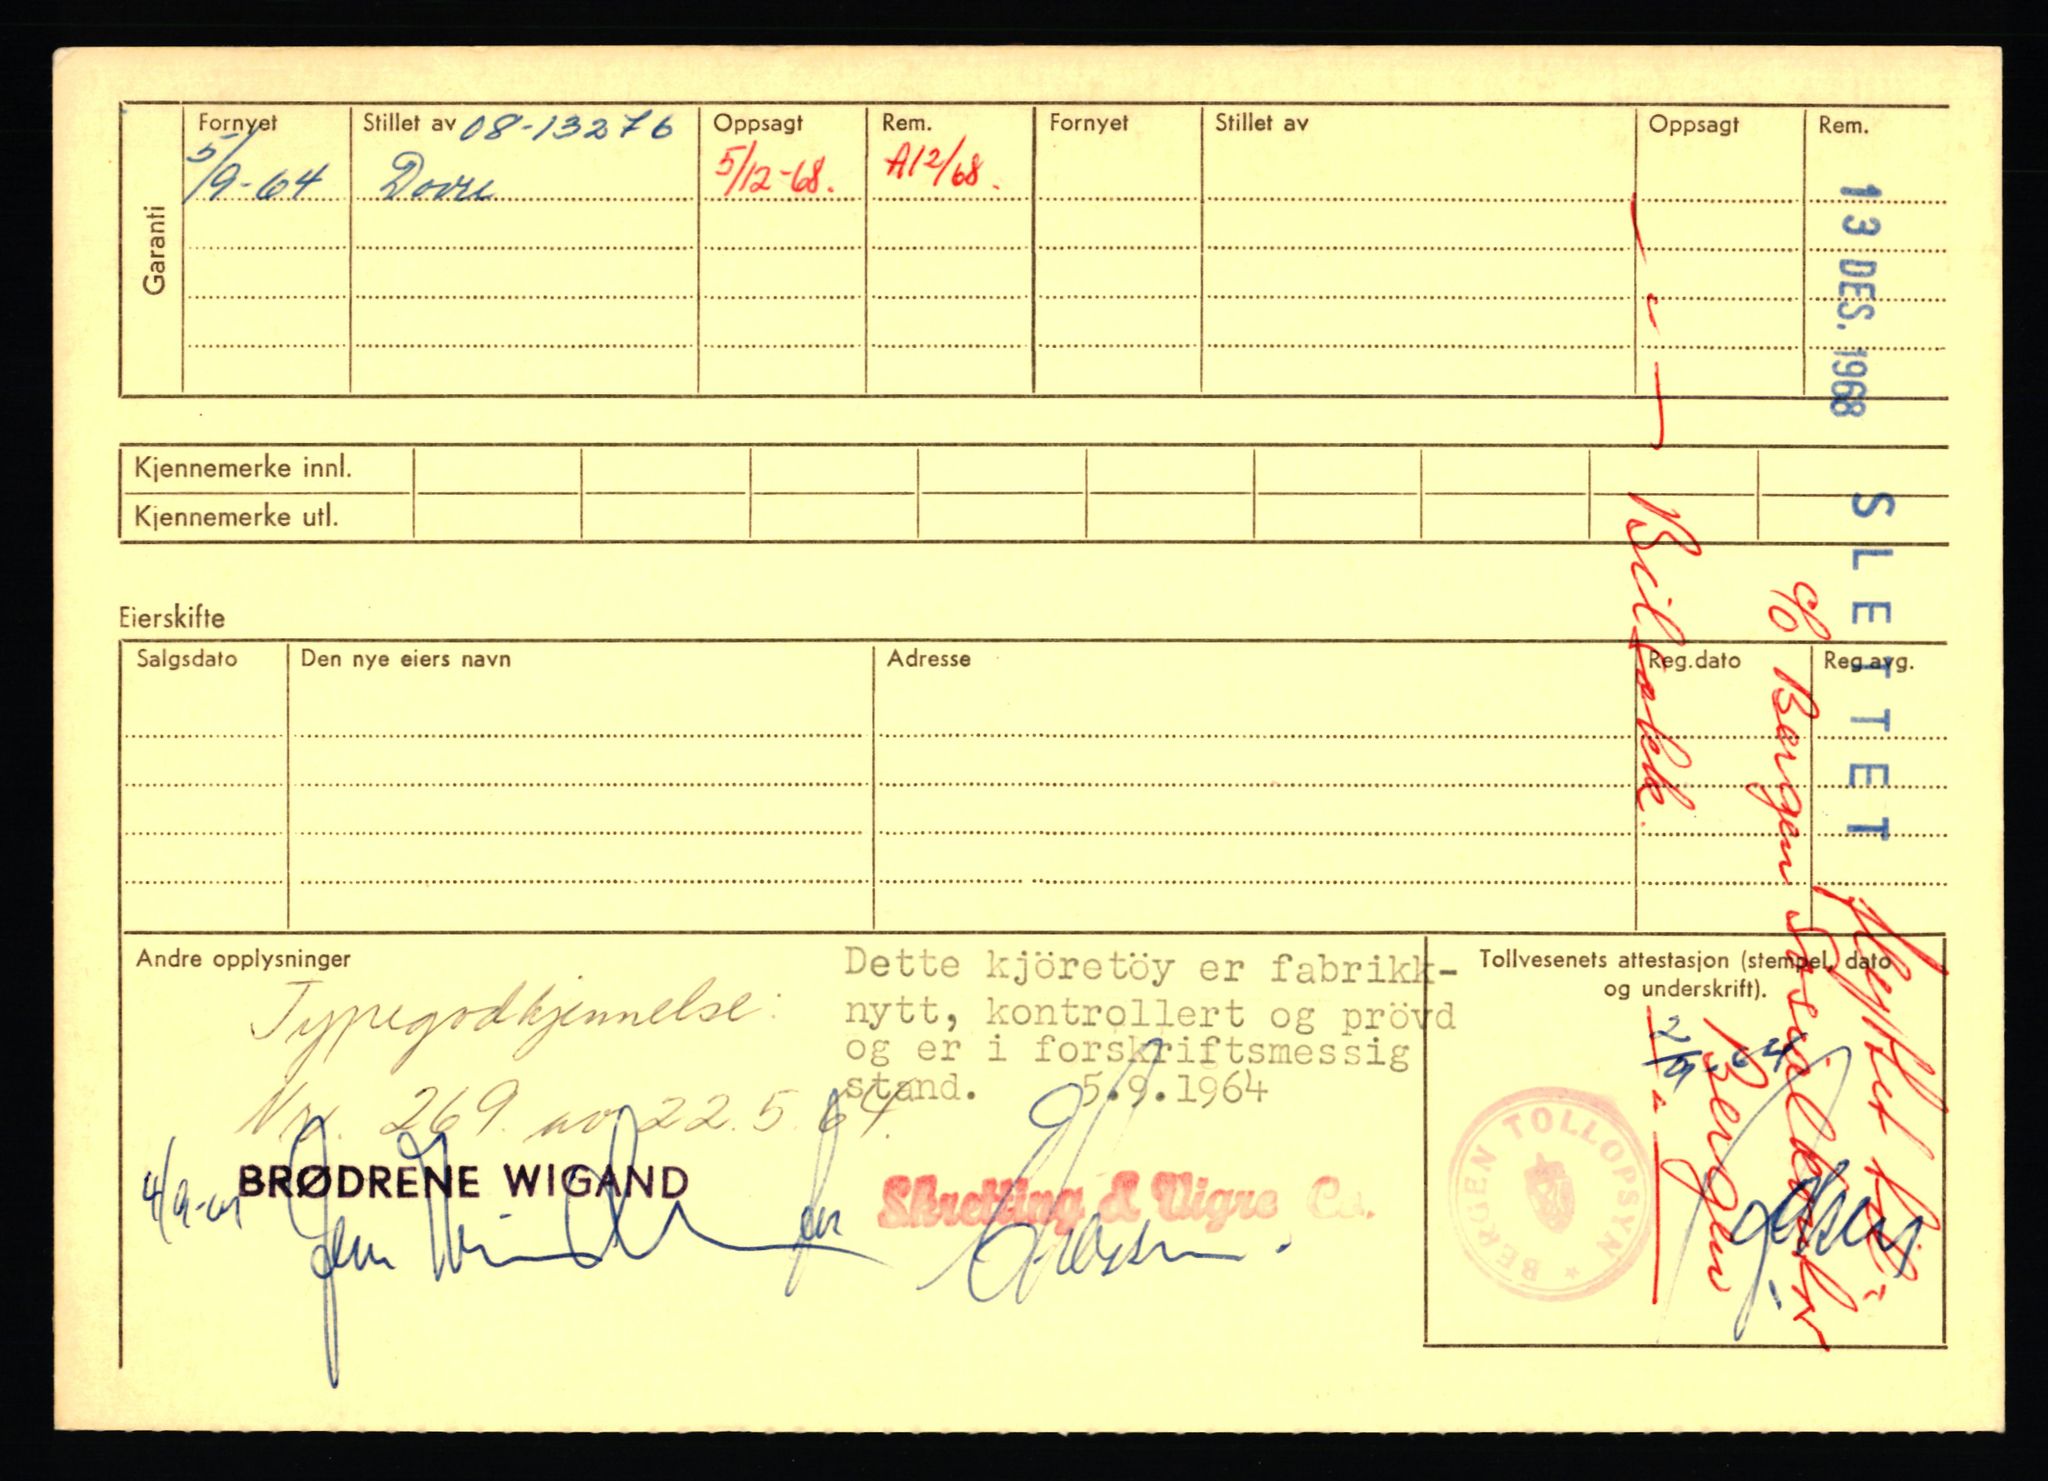 Garanti
Fornyet Stillet av 08-13276 Oppsagt Rem. Fornyet Stillet av Oppsagt Rem.
5/9-64 Dovre 5/12-68. A12/68.
13 DES. 1968
SLETTET
Kjennemerke innl.
Kjennemerke utl.
Eierskifte
Salgsdato Den nye eiers navn Adresse Reg.dato Reg.avg.
Flyttet til:
c/o Bergen
Bergen
Bilsakk.
Andre opplysninger
Typegodkjennelse:
Nr. 269 av 22.5.64.
Dette kjöretöy er fabrikk-
nytt, kontrollert og prövd
og er i forskriftsmessig
stand. 5.9.1964
4/9-64 BRØDRENE WIGAND
for
Skretting & Vigre Co.
Tollvesenets attestasjon (stempel, dato
og underskrift).
2/9-64
BERGEN TOLLOPSYN